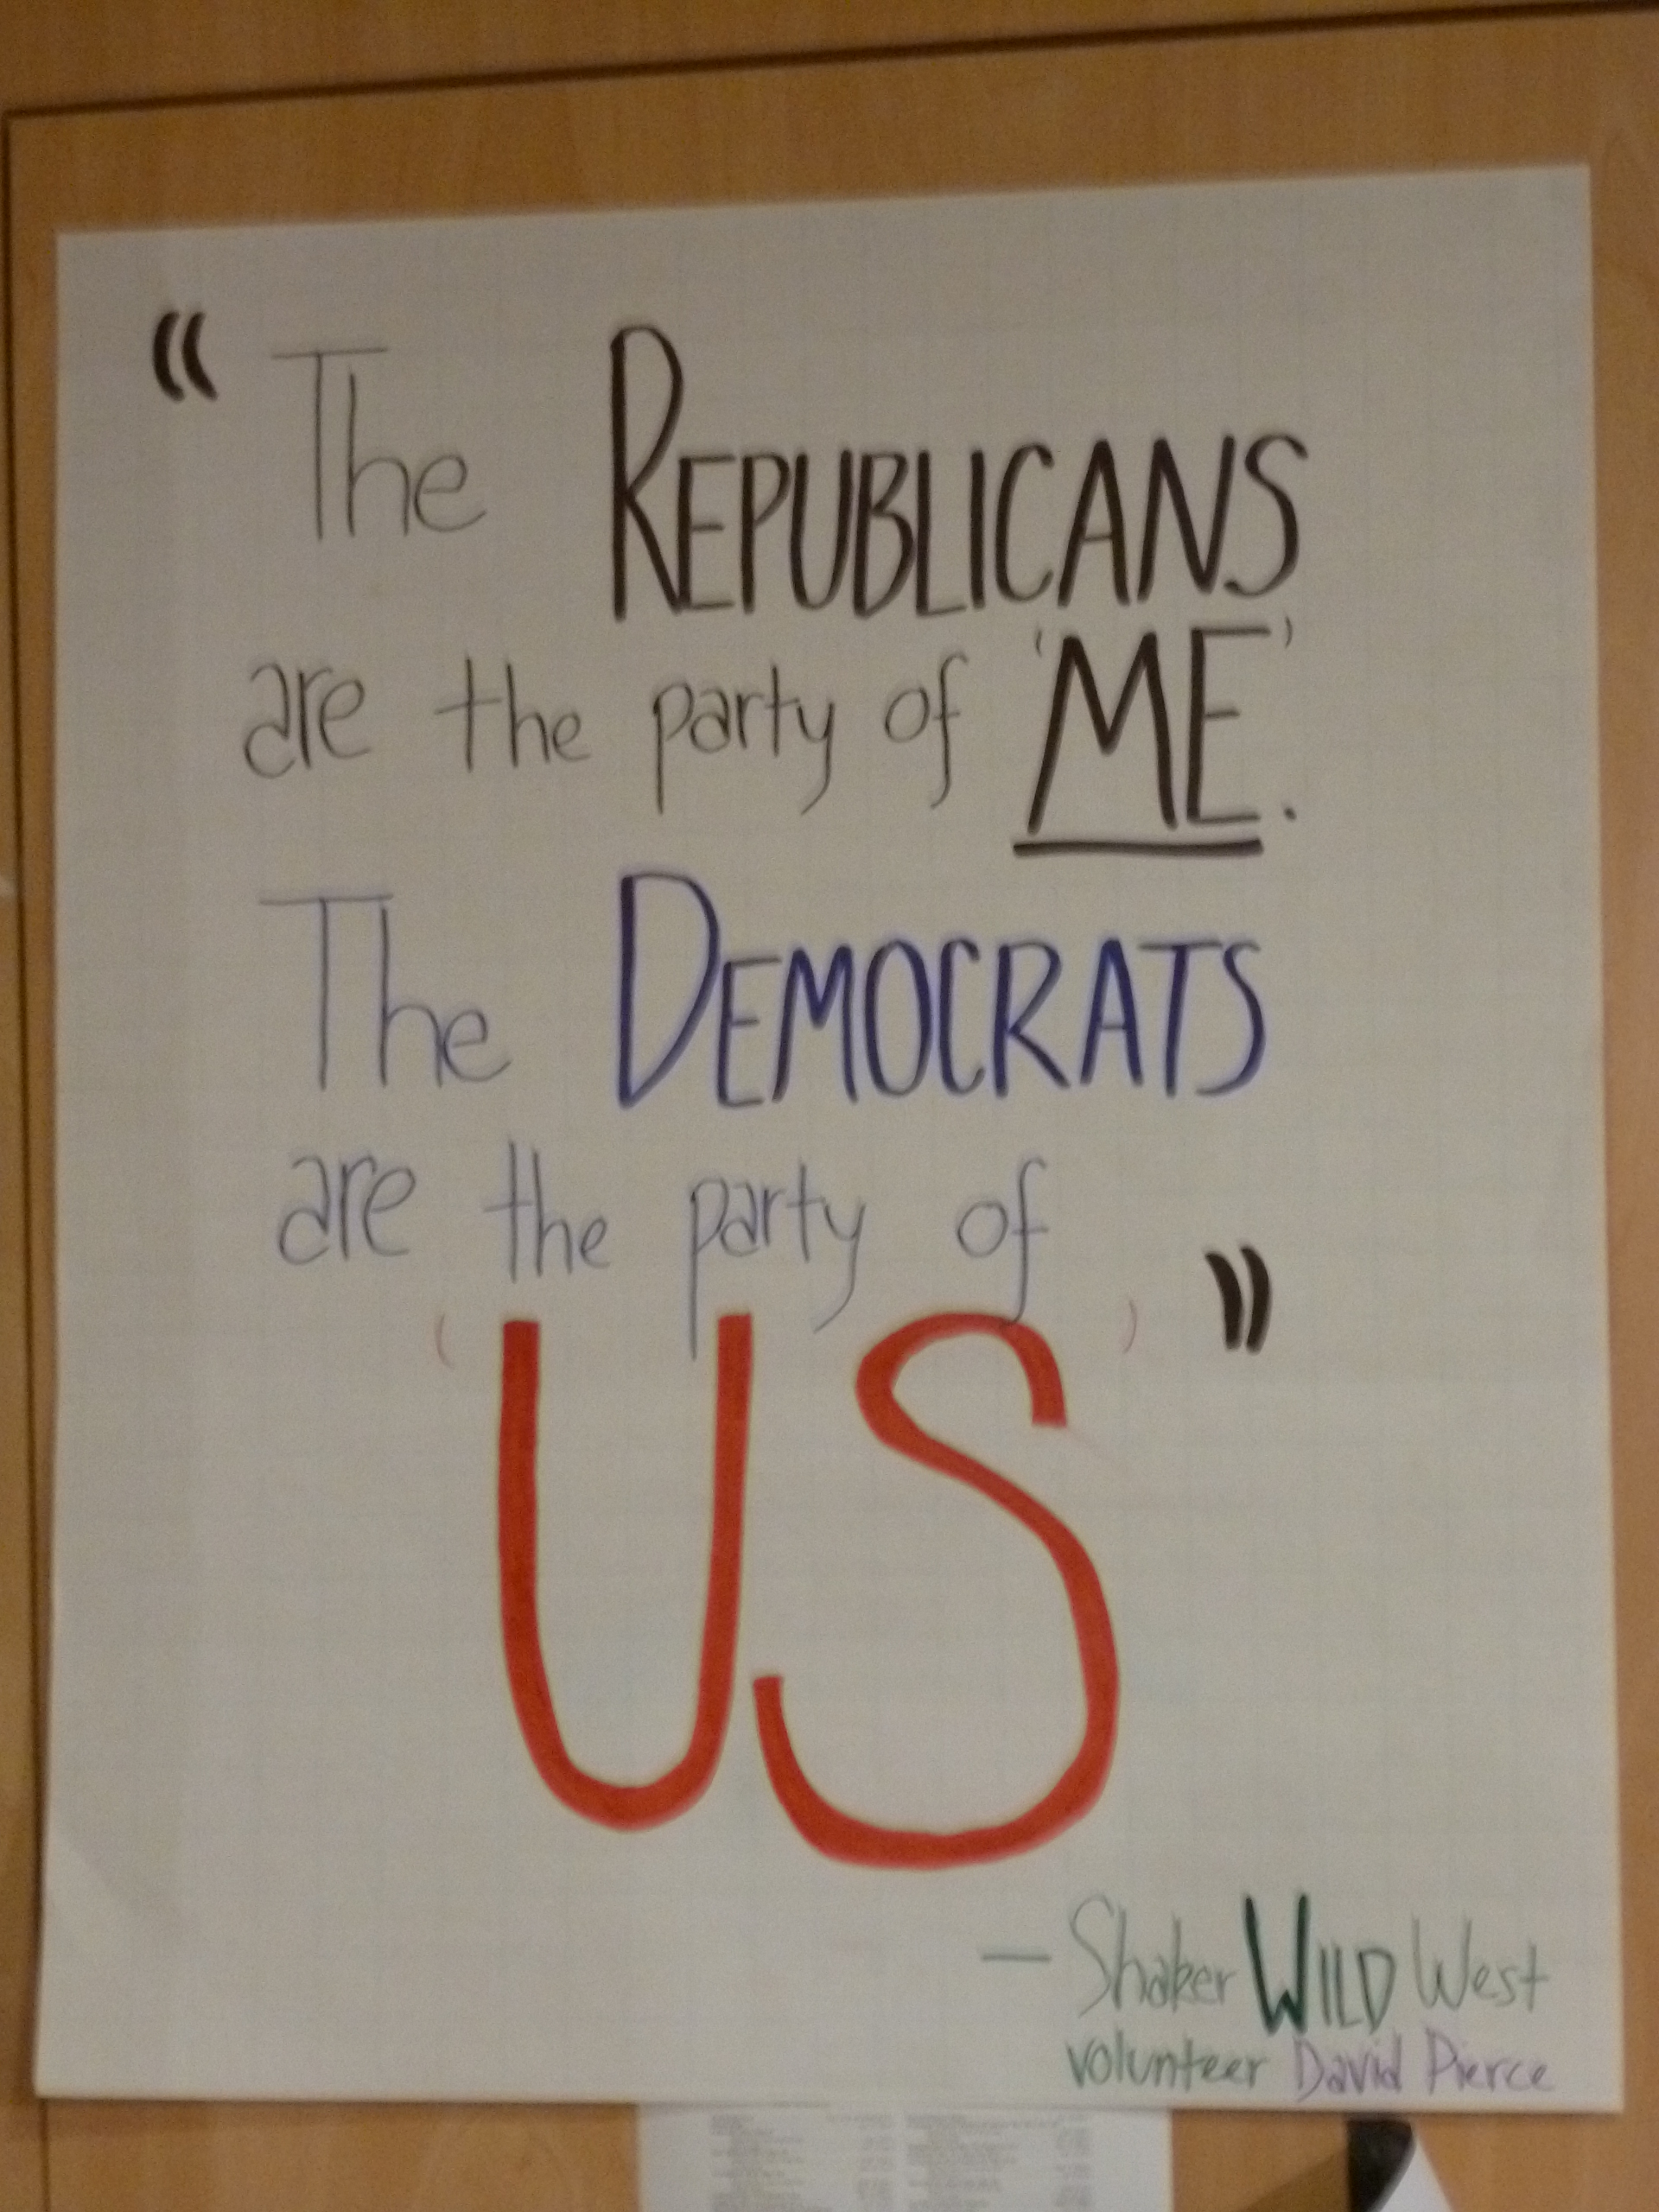 "The REPUBLICANS
are the party of 'ME.'
The DEMOCRATS
are the party of
'US'"
— Shaker WILD West
volunteer David Pierce